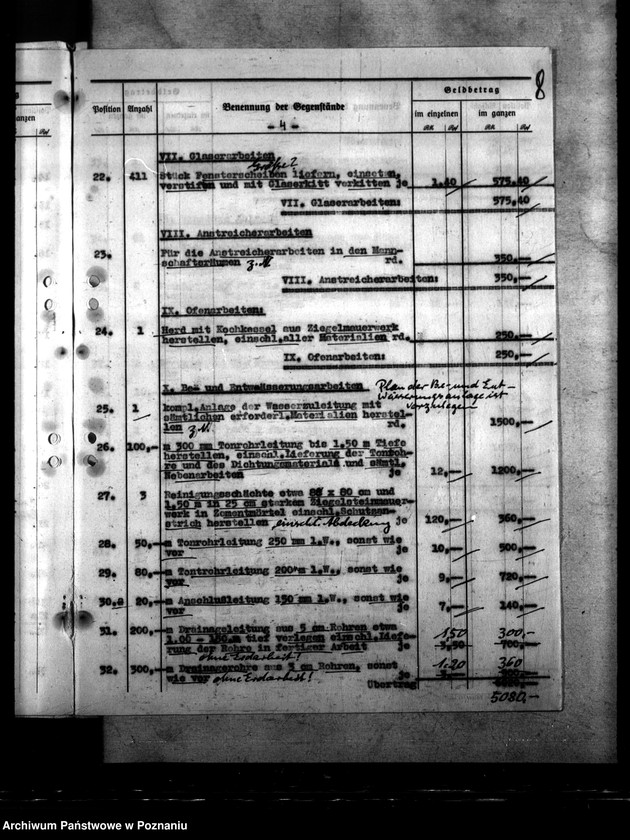 8
Geldbetrag
Position Anzahl Benennung der Gegenstände im einzelnen im ganzen
RK Pf RK Pf
anzen
Pf
- 4 -
VII. Glaserarbeiten
Größe?
22. 411 Stück Fensterscheiben liefern, einsetzen,
verstiften und mit Glaserkitt verkitten je 1,40 575,40
VII. Glaserarbeiten: 575,40
VIII. Anstreicherarbeiten
23. Für die Anstreicherarbeiten in den Mann-
schafträumen z.M. rd. 350,—
VIII. Anstreicherarbeiten: 350,—
IX. Ofenarbeiten:
24. 1 Herd mit Kochkessel aus Ziegelmauerwerk
herstellen, einschl.aller Materialien rd. 250,—
IX. Ofenarbeiten: 250,—
X. Be- und Entwässerungsarbeiten Plan der Be- und Ent-
wässerungsanlage ist
vorzulegen
25. 1 kompl.Anlage der Wasserzuleitung mit
sämtlichen erforderl.Materialien herstel-
len z.M. rd. 1500,—
26. 100,— m 300 mm Tonrohrleitung bis 1.50 m Tiefe
herstellen, einschl.Lieferung der Tonroh-
re und des Dichtungsmaterials und sämtl.
Nebenarbeiten je 12,— 1200,—
27. 3 Reinigungsschächte etwa 80 x 80 cm und
1.50 m in 25 cm starkem Ziegelsteinmauer-
werk in Zementmörtel einschl.Schutzan-
strich herstellen einschl. Abdeckung je 120,— 360,—
28. 50,— m Tonrohrleitung 250 mm l.W., sonst wie
vor je 10,— 500,—
29. 80,— m Tontrohrleitung 200 m l.W., sonst wie
vor je 9,— 720,—
30. 20,— m Anschlußleitung 150 mm l.W., sonst wie
vor je 7,— 140,—
31. 200,— m Drainageleitung aus 5 cm Rohren etwa 1,50 300,-
1.00 - m tief verlegen einschl.Liefe-
rung der Rohre in fertiger Arbeit je 3,50 700,—
ohne Erdarbeit!
32. 300,— m Drainagerohre aus 5 cm Rohren, sonst 1.20 360
wie vor ohne Erdarbeit! je
Übertrag
5080,—
Archiwum Państwowe w Poznaniu